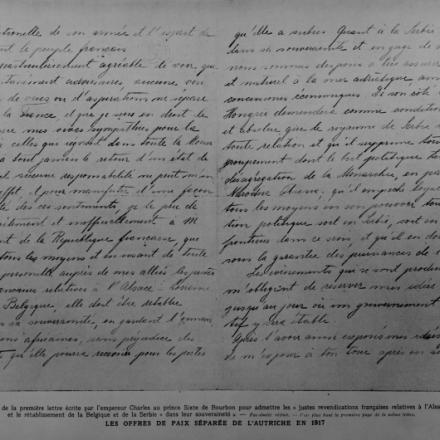 traditionnelle de son armée et l'esprit de
le peuple français
particulièrement agréable de voir, que
adversaires aucune
de vues ou d'aspirations ne sépare
la France et que je suis en droit de
que mes vives sympathies pour la
à celles qui règnent dans toute la Monar
à tout jamais le retour d'un état de
aucune responsabilité ne peut m'in
effet, et pour manifester d'une façon
de ces sentiments, je te prie de
et inofficiellement à M.
de la République française, que
tous les moyens et en usant de toute
personnelle auprès de mes alliés les justes
relatives à l'Alsace-Lorraine
Belgique, elle doit être rétablie
sa souveraineté, en gardant l'ensemble
africaines, sans préjudice des
qu'elle pourra recevoir pour les pertes
qu'elle a subies. Quant à la Serbie
dans sa souveraineté et en gage de
nous sommes disposés à lui assurer
et naturel à la mer adriatique, ainsi
concessions économiques. De son côté
Hongrie demandera comme condition
et absolue, que le royaume de Serbie
toute relation et qu'il supprime tout
groupement dont le but politique
désagrégation de la Monarchie, en pa
qu'il empêche
tous les moyens en son pouvoir, toute
tion politique soit en Serbie, soit en
frontières dans ce sens, et qu'il en donne
sous la garantie des puissances de
Les événements qui se sont produits
m'obligent de réserver mes idées
jusqu'au jour où un gouvernement
y sera établi.
Après t'avoir ainsi exposé mes idées
de m'exposer à ton tour, après en
de la première lettre écrite par l'empereur Charles au prince Sixte de Bourbon pour admettre les « justes revendications françaises relatives à l'Alsa
et le rétablissement de la Belgique et de la Serbie « dans leur souveraineté ».
LES OFFRES DE PAIX SÉPARÉE DE L'AUTRICHE EN 1917